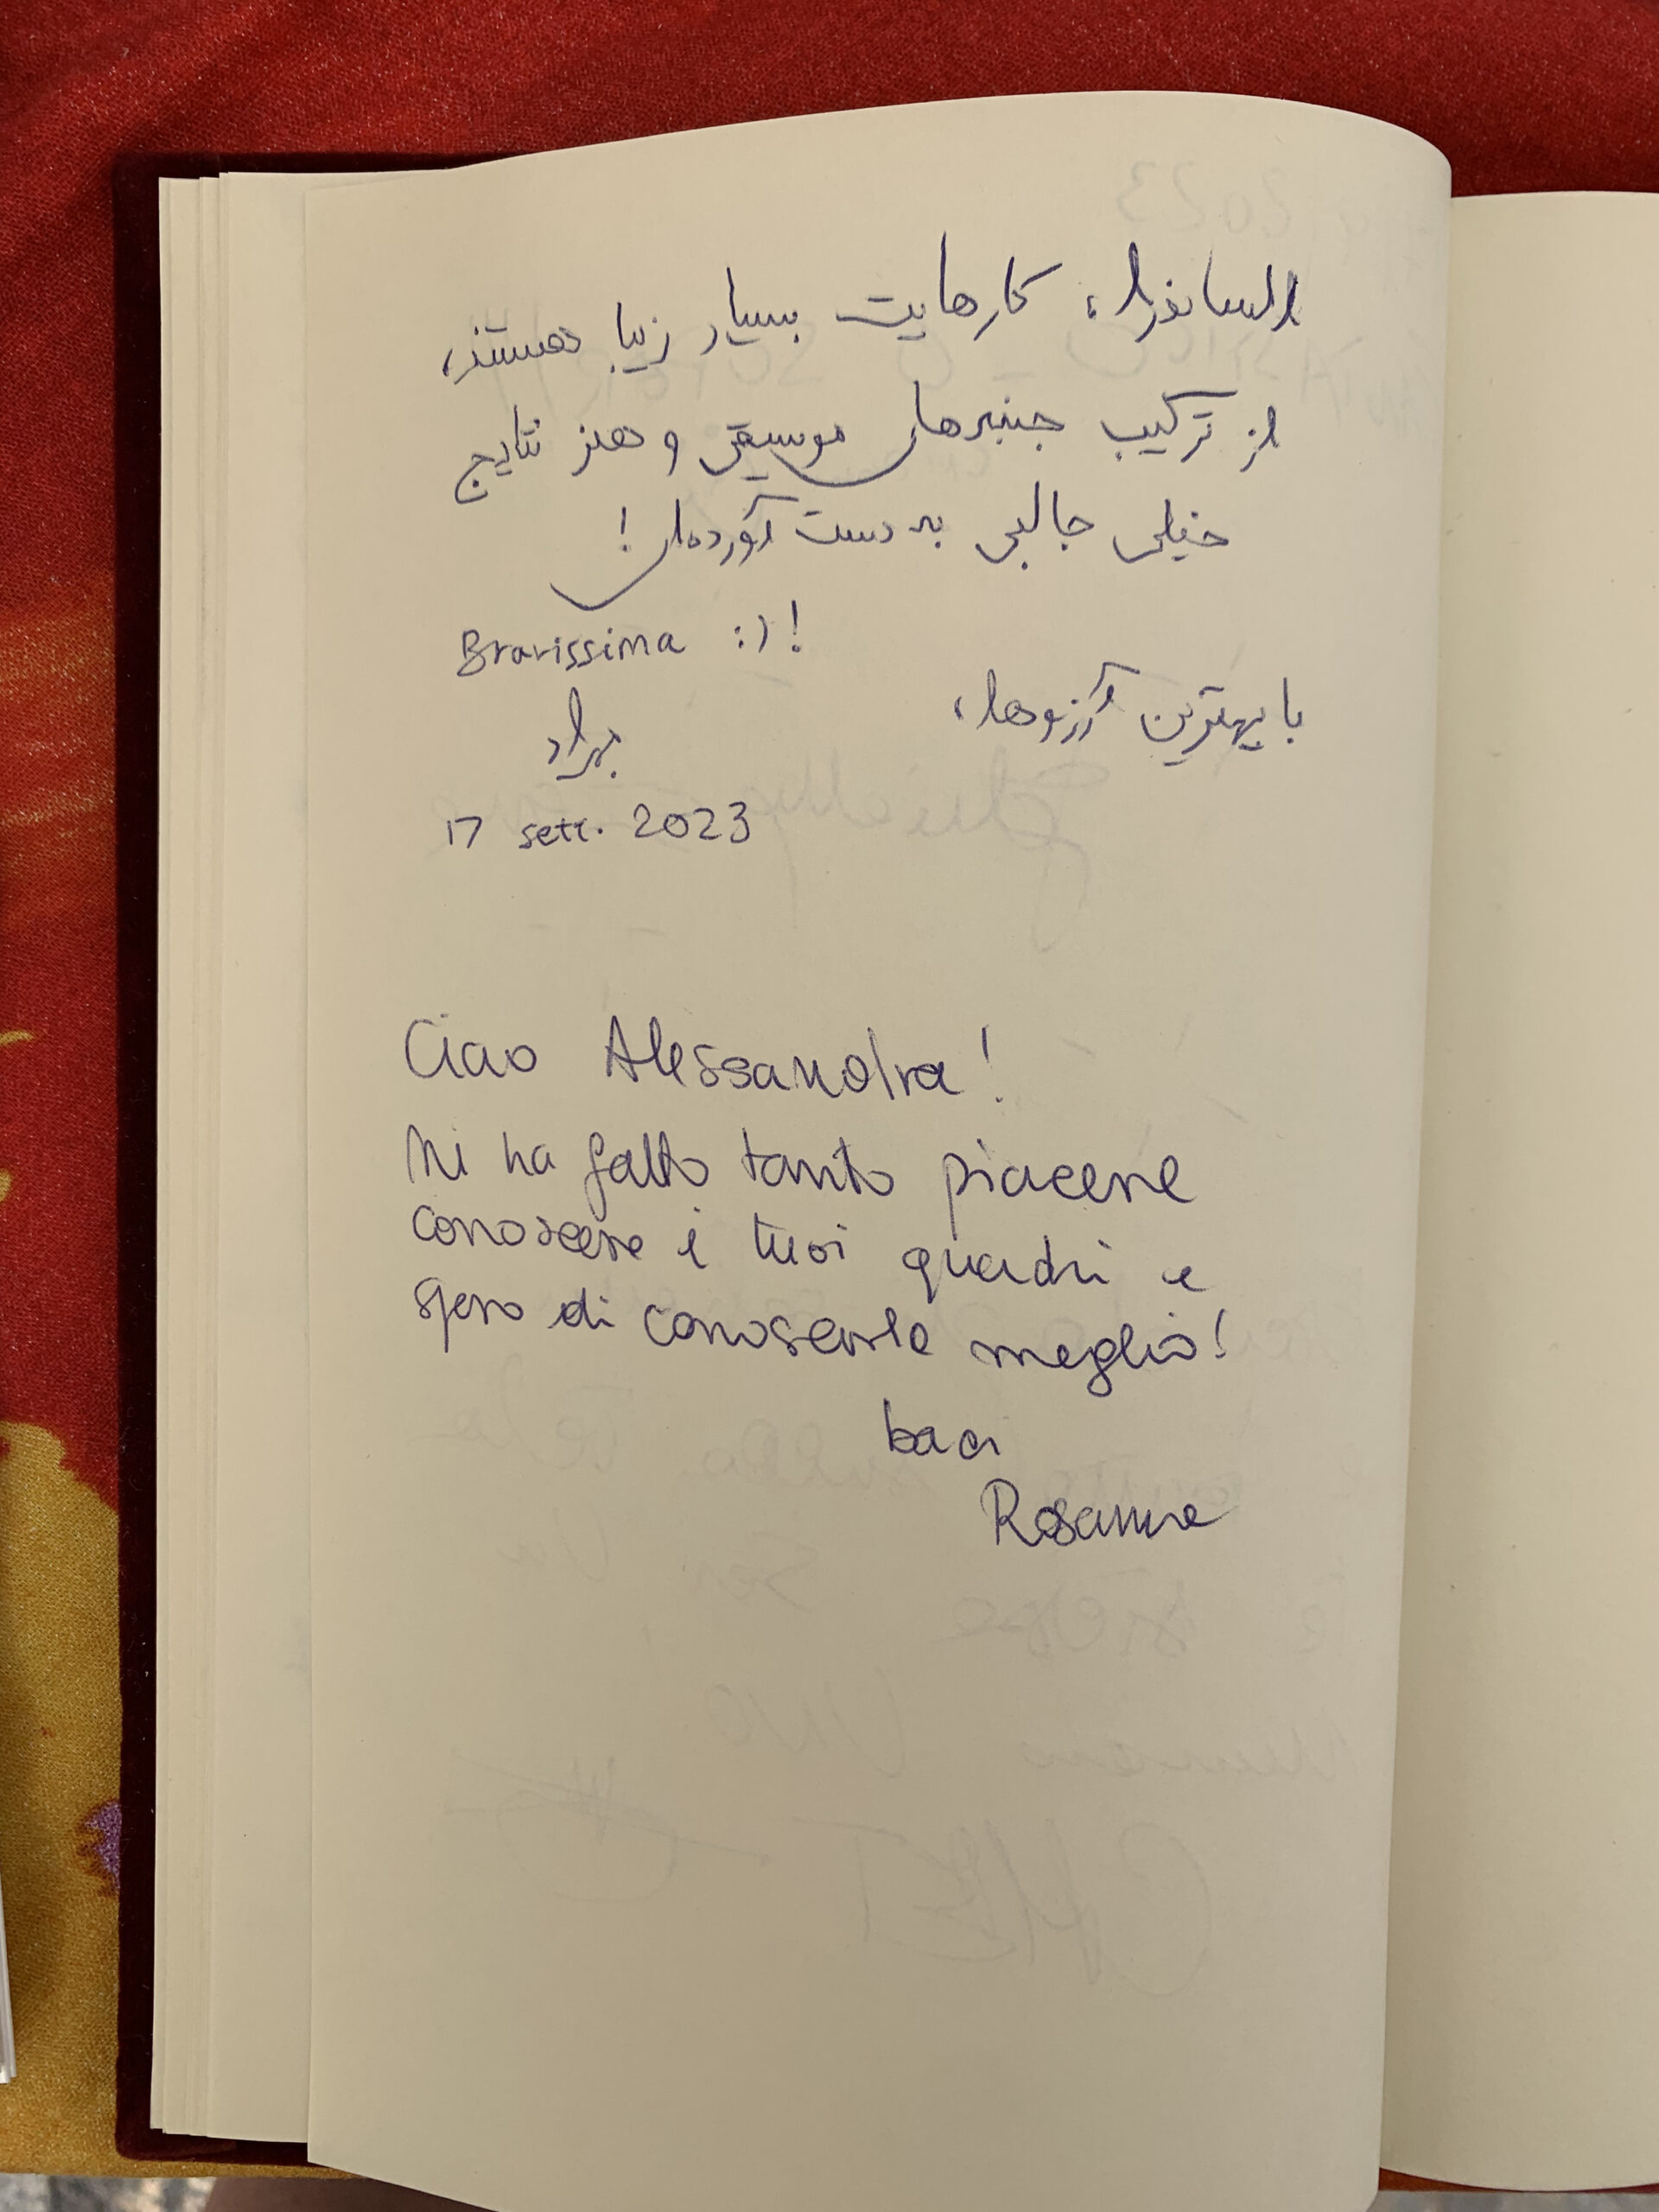 الساندرا، کارهایت بسیار زیبا هستند،
از ترکیب جنبه‌های موسیقی و هنر نتایج
خیلی جالبی به دست آورده‌ای!
Bravissima :)!
با بهترین آرزوها،
مهراد
17 sett. 2023
Ciao Alessandra!
Mi ha fatto tanto piacere
conoscere i tuoi quadri e
spero di conoscerle meglio!
baci
Rosanna